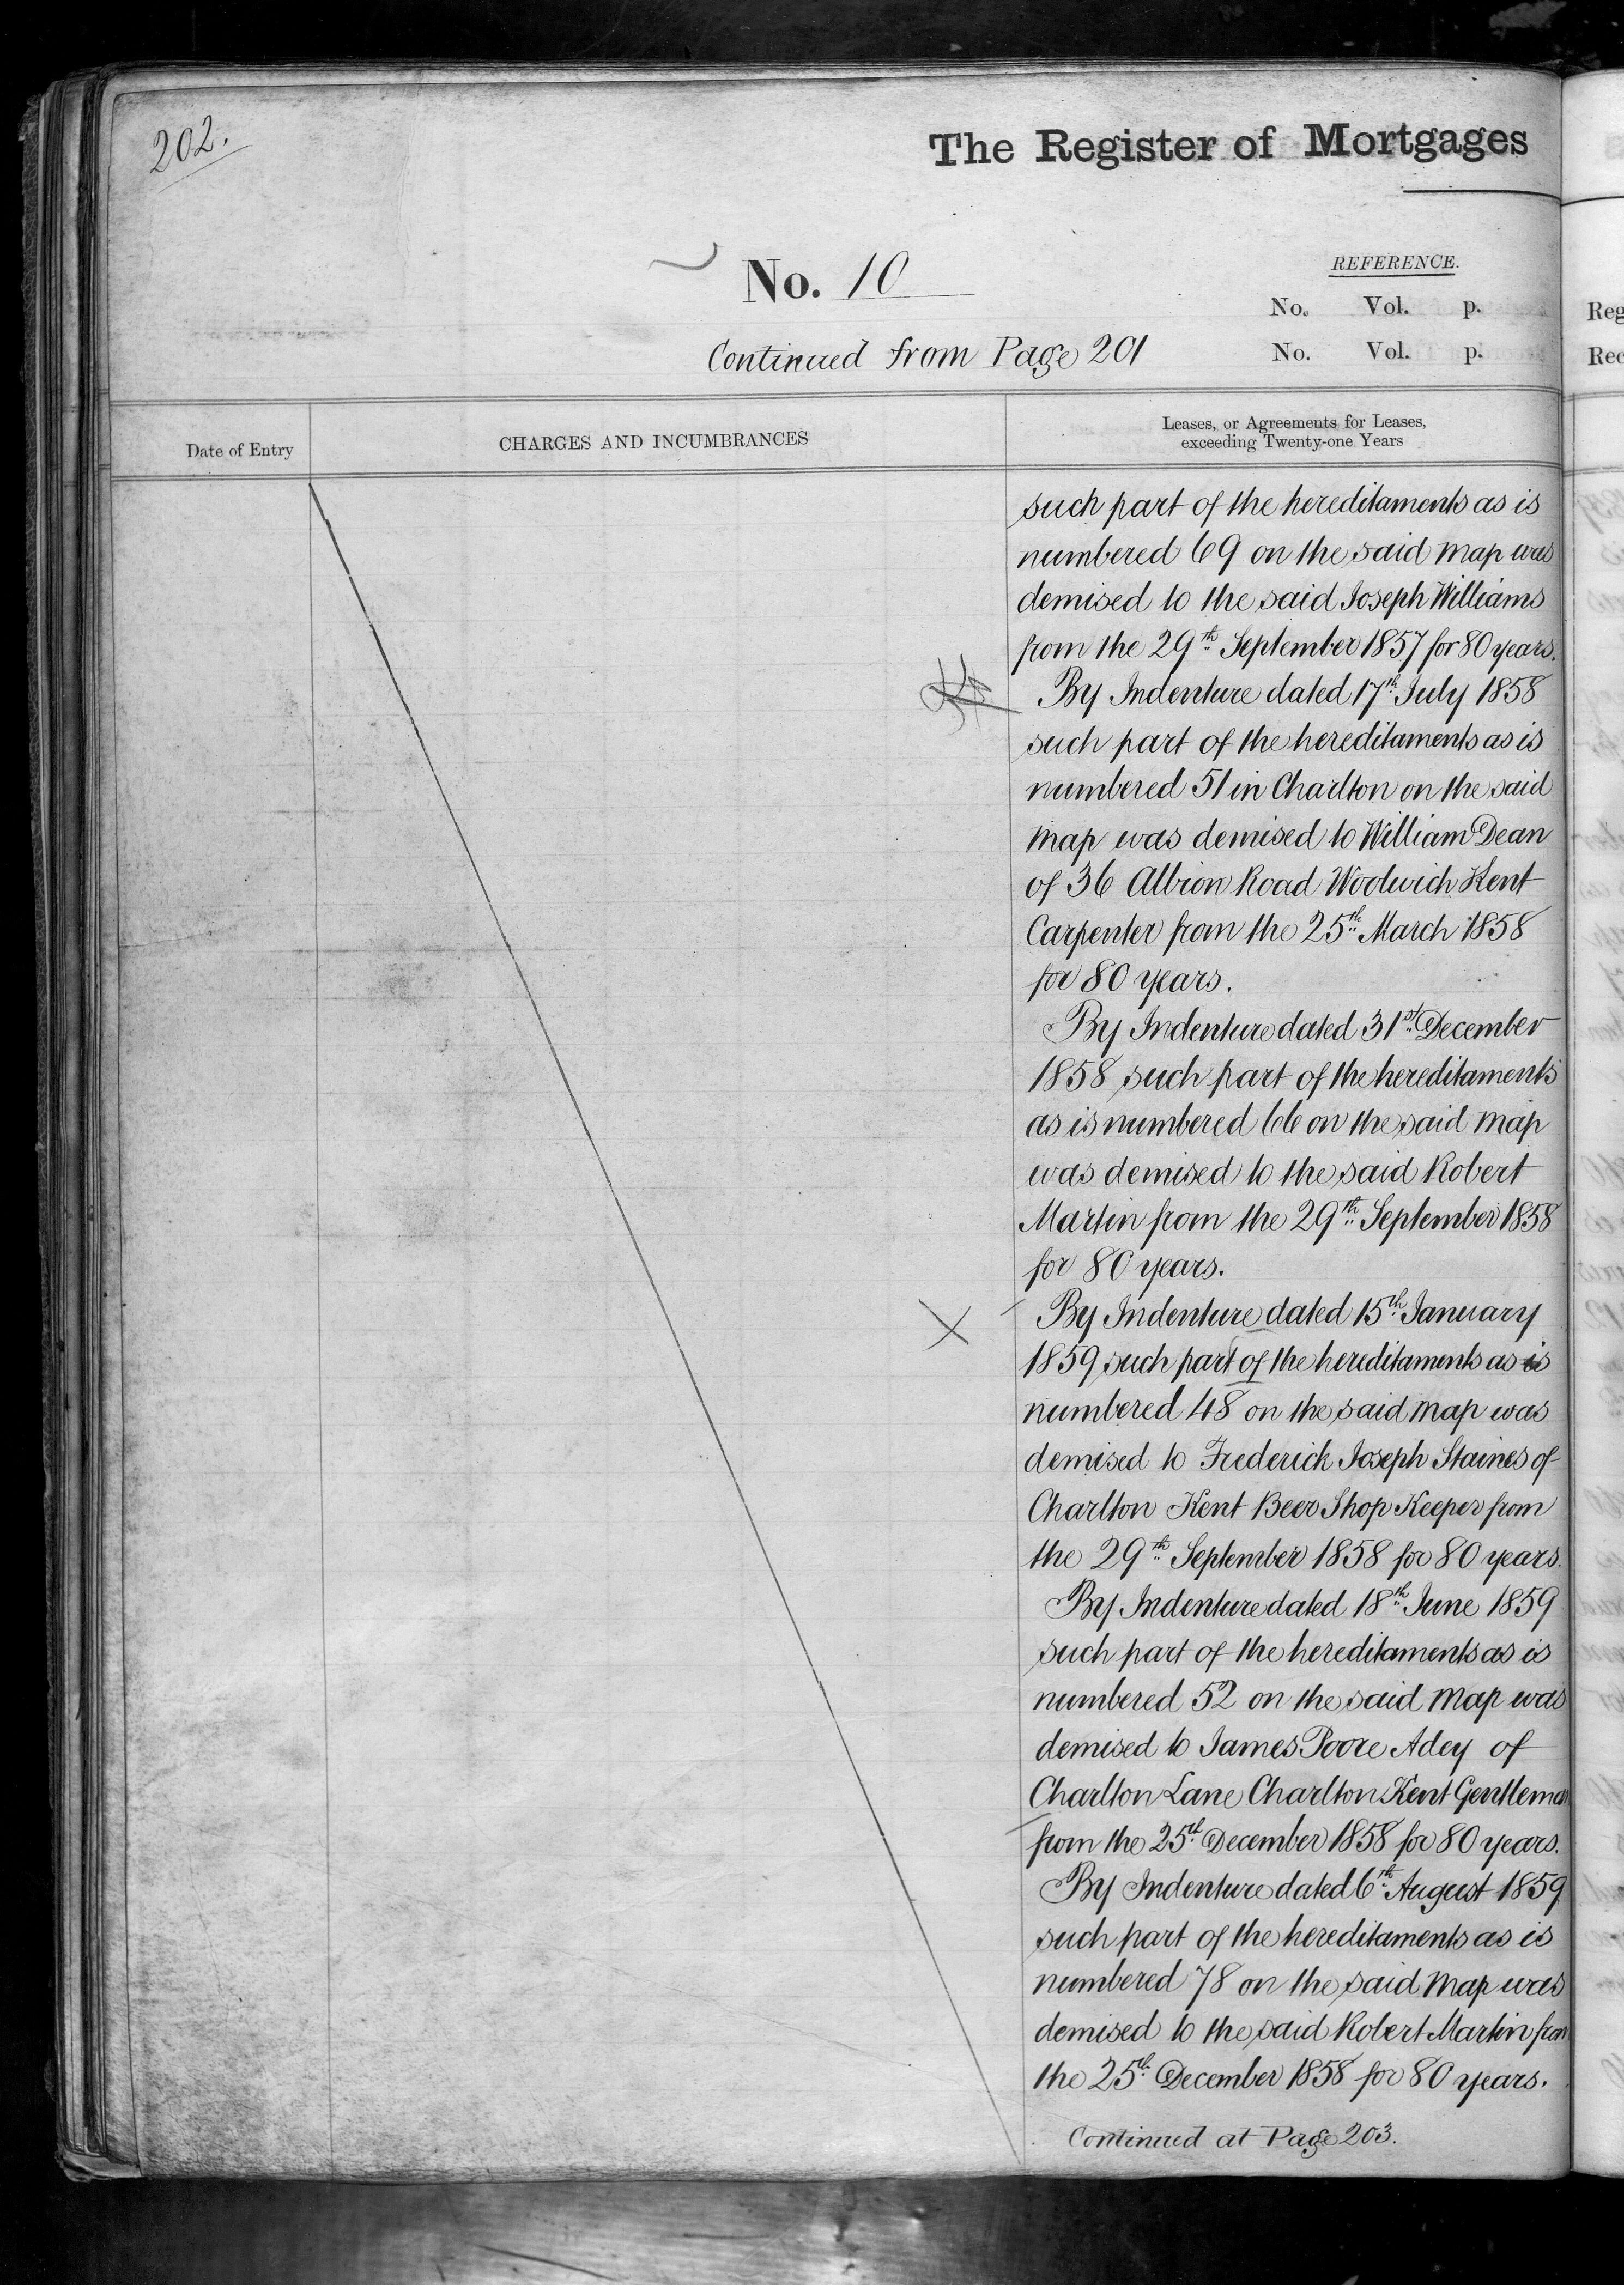 202.
The Register of Mortgages
No. 10
REFERENCE.
No. Vol. p.
Reg
Continued from Page 201
No. Vol. p.
Rec
Date of Entry
CHARGES AND INCUMBRANCES
Leases, or Agreements for Leases,
exceeding Twenty-one Years
such part of the hereditaments as is
numbered 69 on the said map was
demised to the said Joseph Williams
from the 29th September 1857 for 80 years.
By Indenture dated 17th July 1858
such part of the hereditaments as is
numbered 51 in Charlton on the said
map was demised to William Dean
of 36 Albion Road Woolwich Kent
Carpenter from the 25th March 1858
for 80 years.
By Indenture dated 31st December
1858 such part of the hereditaments
as is numbered 66 on the said map
was demised to the said Robert
Martin from the 29th September 1858
for 80 years.
By Indenture dated 15th January
1859 such part of the hereditaments as is
numbered 48 on the said map was
demised to Frederick Joseph Staines of
Charlton Kent Beer Shop Keeper from
the 29th September 1858 for 80 years.
By Indenture dated 18th June 1859
such part of the hereditaments as is
numbered 52 on the said map was
demised to James Poore Adey of
Charlton Lane Charlton Kent Gentleman
from the 25th December 1858 for 80 years.
By Indenture dated 6th August 1859
such part of the hereditaments as is
numbered 78 on the said map was
demised to the said Robert Martin from
the 25th December 1858 for 80 years.
Continued at Page 203.